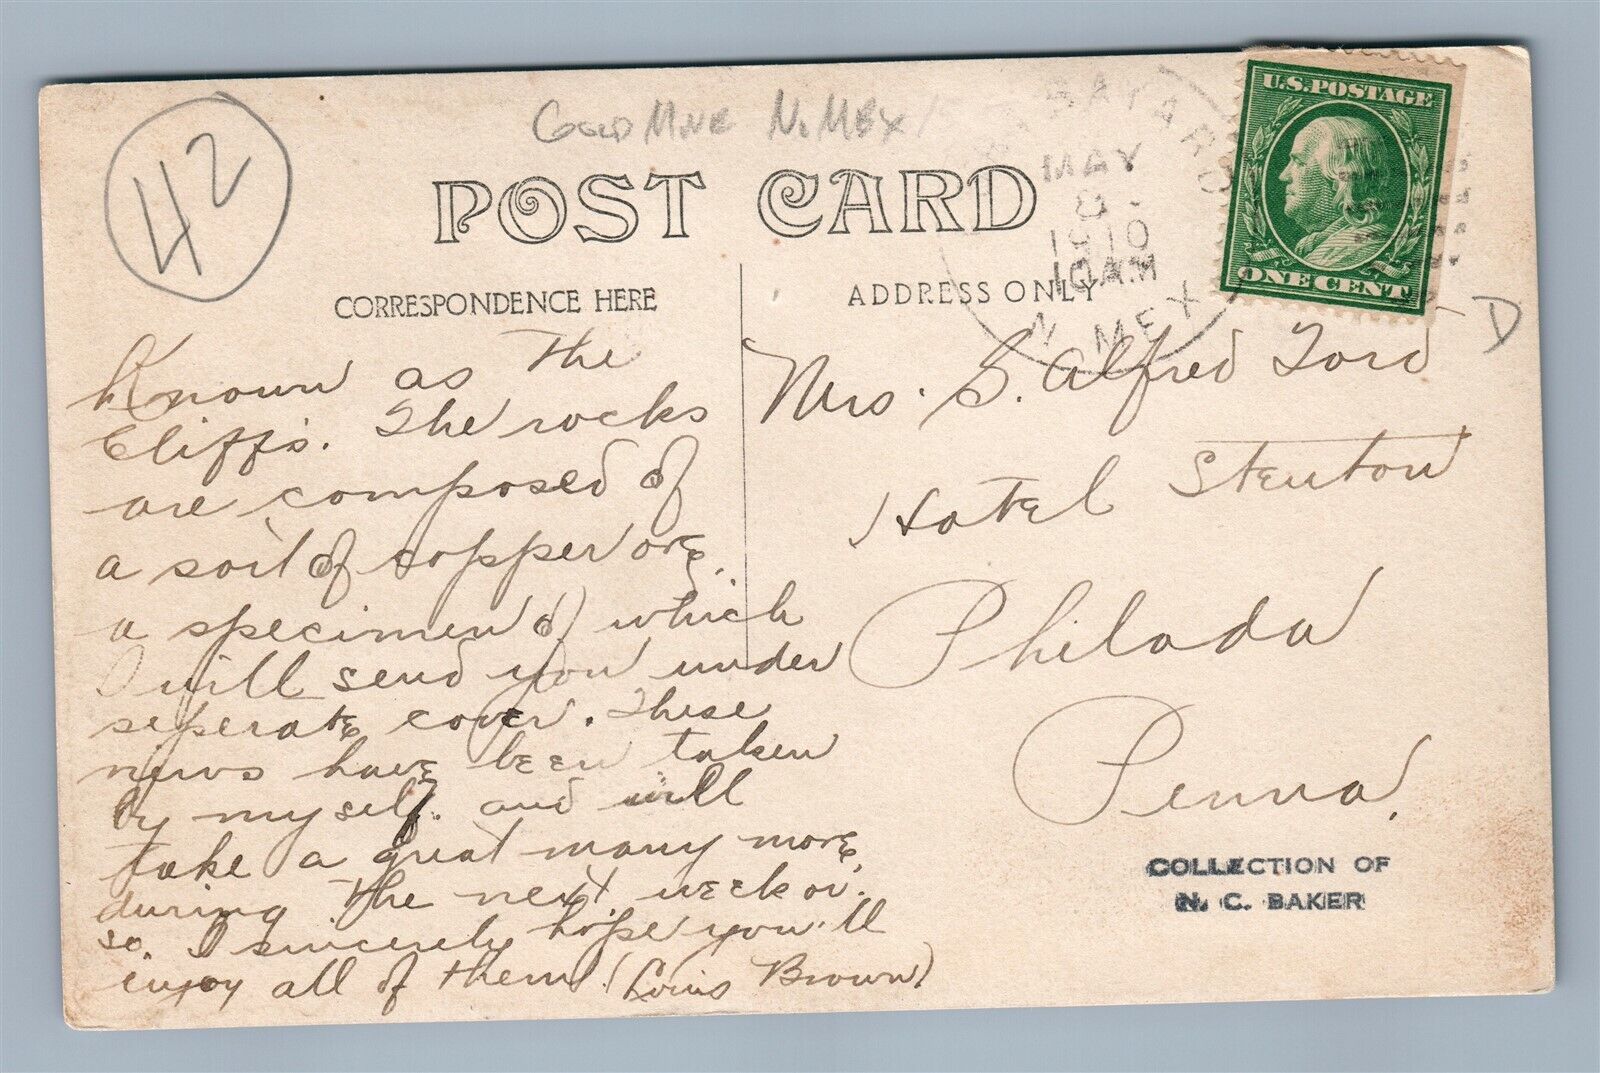 42
Gold Mine N. Mex
POST CARD
CORRESPONDENCE HERE
ADDRESS ONLY
BAYARD
MAY
1910
10 AM
N. MEX
U.S. POSTAGE
ONE CENT
D
Known as the
Cliffs. The rocks
are composed of
a sort of copper ore,
a specimen of which
I will send you under
seperate cover. These
views have been taken
by myself. and will
take a great many more,
during the next week or
so. I sincerely hope you'll
enjoy all of them. (Louis Brown)
Mrs. S. Alfred Tord
Hotel Stenton
Philada
Penna.
COLLECTION OF
N. C. BAKER